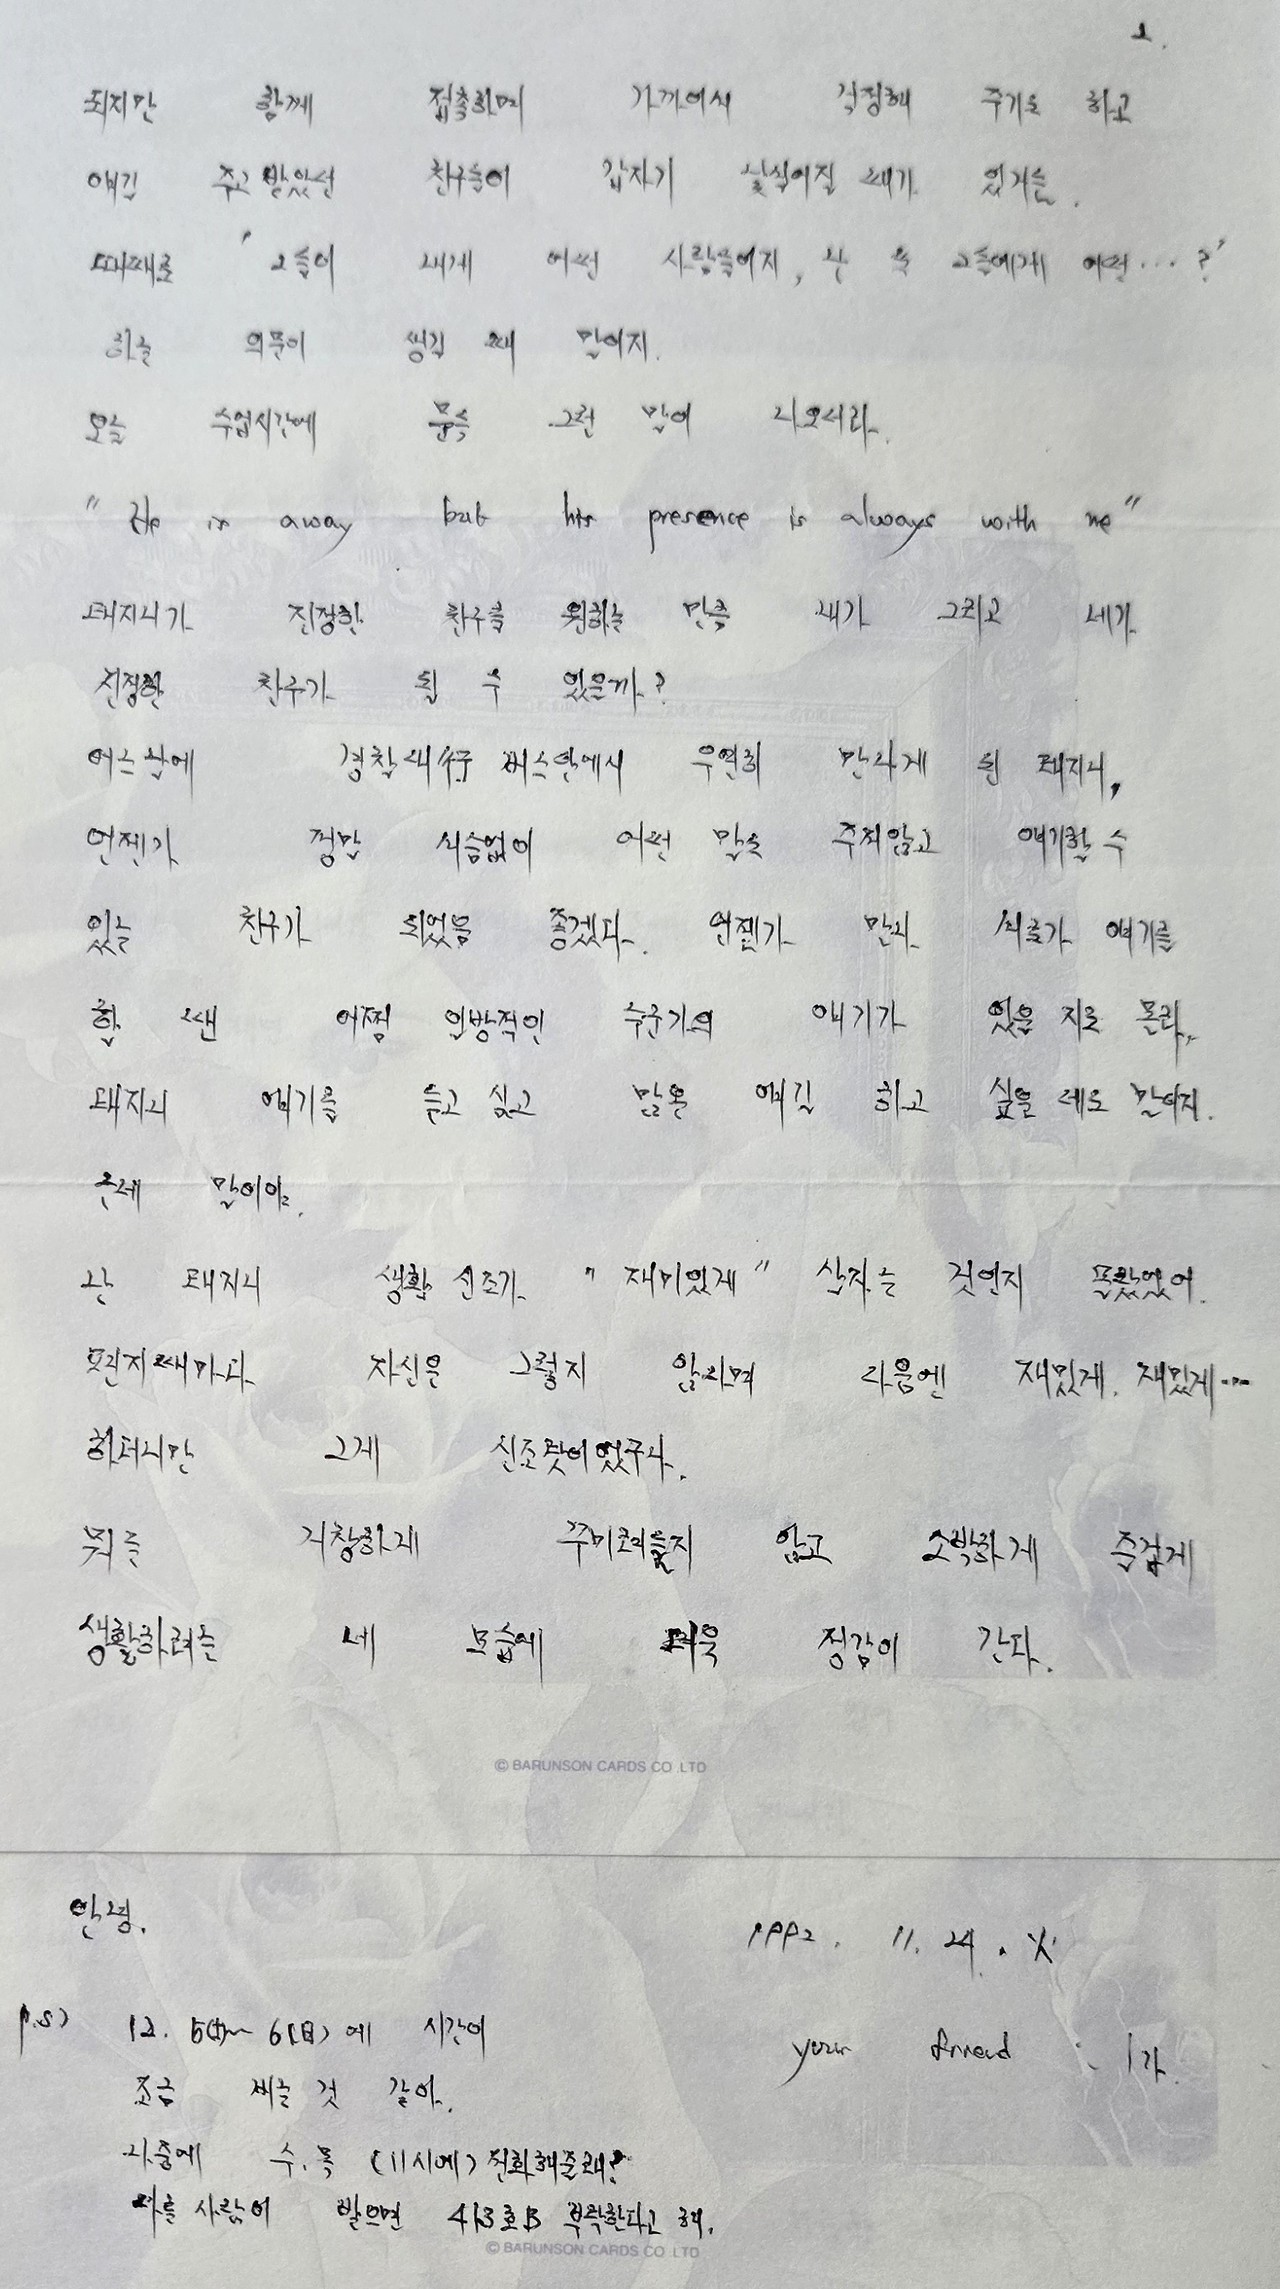 2.
되지만 함께 접촉하며 가까이서 걱정해 주기도 하고
얘긴 주고 받았던 친구들이 갑자기 낯설어질 때가 있거든.
때때로 '그들이 내게 어떤 사람들이지, 난 또 그들에게 어떤…?'
하는 의문이 생길 때 말이지.
오늘 수업시간에 문득 그런 말이 나오더라.
"He is away but his presence is always with me"
태지니가 진정한 친구를 원하는 만큼 내가 그리고 네가
진정한 친구가 될 수 있을까?
어느날에 경찰대行 버스안에서 우연히 만나게 된 태지니,
언젠가 정말 서슴없이 어떤 말도 주저않고 얘기할 수
있는 친구가 되었음 좋겠다. 언젠가 만나 서로가 얘기를
할 땐 어쩜 일방적인 누군가의 얘기가 있을 지도 몰라,
태지니 얘기를 듣고 싶고 많은 얘길 하고 싶은 데도 말이지.
근데 말이야.
난 태지니 생활 신조가 "재미있게" 살자는 것인지 몰랐었어.
편지때마다 자신은 그렇지 않다며 다음엔 재밌게. 재밌게…
하더니만 그게 신조탓이었구나.
뭐든 거창하게 꾸미려들지 않고 소박하게 즐겁게
생활하려는 네 모습에 더욱 정감이 간다.
© BARUNSON CARDS CO .LTD
안녕.
1992. 11. 24. 火
p.s) 12. 5(土)~ 6(日)에 시간이
your friend : 1가
조금 비는 것 같아.
나중에 수.목 (11시에) 전화해줄래?
다른 사람이 받으면 413호B 부탁한다고 해.
© BARUNSON CARDS CO .LTD